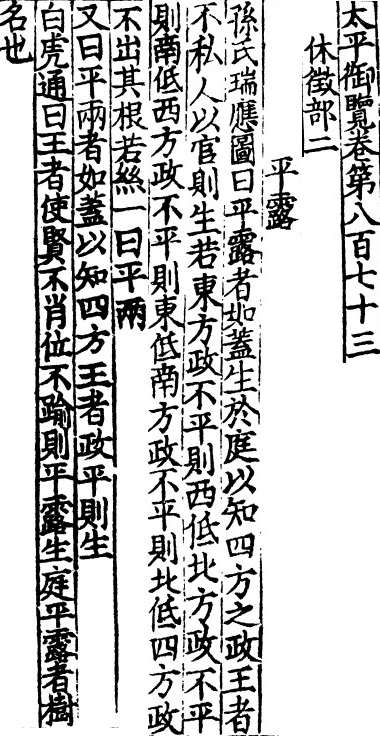 太平御覽卷第八百七十三
休徵部二
平露
孫氏瑞應圖曰平露者如蓋生於庭以知四方之政王者
不私人以官則生若東方政不平則西低北方政不平
則南低西方政不平則東低南方政不平則北低四方政
不出其根若絲一曰平兩
又曰平兩者如蓋以知四方王者政平則生
白虎通曰王者使賢不肖位不踰則平露生庭平露者樹
名也